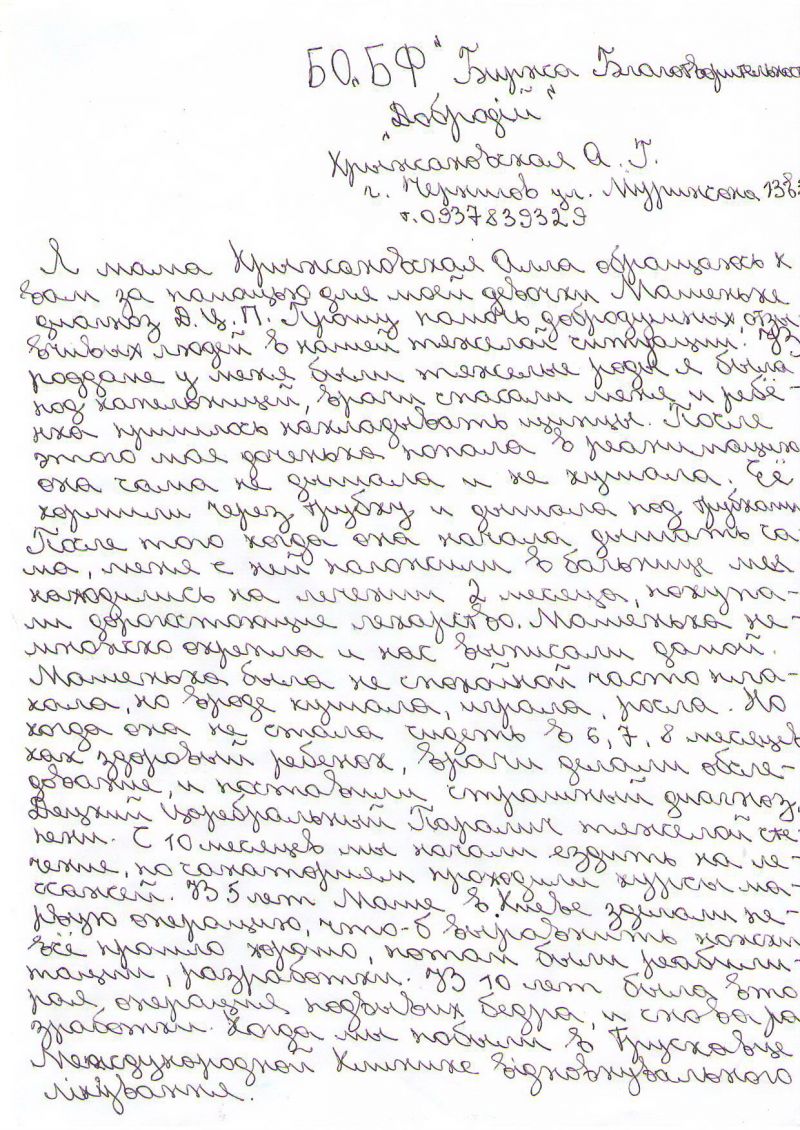 БО„БФ" Биржа Благотворительности
„Добродій"
Хрыжсановская А. Г.
г. Чернигов ул. Муринсона
т. 0937839329
Я мама Хрыжсановская Алла обращаюсь к
вам за памащью для моей девочки Машеньке
диагноз Д. Ц. П. Прошу памочь добродушных, отзы-
вчивых людей в нашей тяжелой ситуации. В
роддаме у меня были тяжелые роды я была
под капельницей, врачи спасали меня и ребё-
нка пришлось накладывать щипцы. После
этого моя доченька попала в реанимацию
она сама не дышала и не кушала. Её
кормили через трубку и дышала под трубками
После того когда она начала дышать са-
ма, меня с ней положили в больнице мы
находились на лечении 2 месяца, покупа-
ли дорогастоющие лекарство. Машенька не-
множско окрепла и нас выписали дамой.
Машенька была не спокойной часто пла-
кала, но вроде кушала, играла, росла. Но
когда она не стала сидеть в 6, 7, 8 месяцев
как здоровый ребенок, врачи делали обсле-
дование, и поставили страшный диагноз,
Децкий Церебральный Паралич тяжелой сте-
пени. С 10 месяцев мы начали ездить на ле-
чение, по санаториям проходили курсы ма-
ссажей. В 5 лет Маше в Киеве зделали пе-
рвую операцию, что-б выравнить ножки
всё прошло хорошо, потом были реабили-
тации, разработки. В 10 лет была вто
рая операция подвывих бедра, и снова ра
зработки. Когда мы побыли в Трусковце
Международной Клинике відновнувального
лікування.